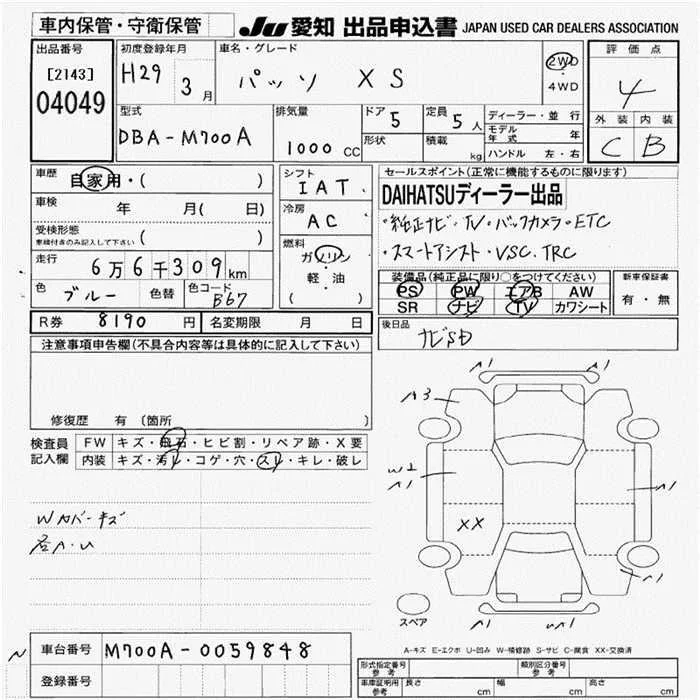 車内保管・守衛保管
JU 愛知 出品申込書 JAPAN USED CAR DEALERS ASSOCIATION
出品番号
[2143]
04049
初度登録年月
H29 3月
車名・グレード
パッソ XS
2WD
4WD
評価点
4
外装 内装
C B
型式
DBA-M700A
排気量
1000 CC
ドア 5
形状
定員 5人
積載 kg
ディーラー・並行
モデル年式 年
ハンドル 左・右
車歴 自家用・( )
車検 年 月( 日)
受検形態
車検付きのみ記入して下さい ( )
走行 6万6千309km
色 ブルー 色替 色コード B67
シフト
IAT
冷房
AC
燃料
ガソリン
軽・油
( )
セールスポイント(正常に機能するものに限ります)
DAIHATSUディーラー出品
・純正ナビ・TV・バックカメラ・ETC
・スマートアシスト・VSC.TRC
装備品(純品に限り○をつけてください)
PS PW エアB AW
SR ナビ TV カワシート
新車保証書
有・無
R券 8190円 名変期限 月 日
後日品 ナビSD
注意事項申告欄(不具合内容等は具体的に記入して下さい)
修復歴 有 (箇所 )
検査員記入欄
FW キズ・飛石・ヒビ割・リペア跡・X要
内装 キズ・汚レ・コゲ・穴・スレ・キレ・破レ
Wカバーキズ
各A・U
A1
A1
A3
W2
A1
XX
A1
A1
A1
UA1
スペア
A-キズ E-エクボ U-凹み W-補修跡 S-サビ C-腐食 XX-交換済
車台番号 M700A-0059848
登録番号
形式指定番号 参考
類別区分番号 参考
車庫証明用 参考 長さ cm 幅 cm 高さ cm